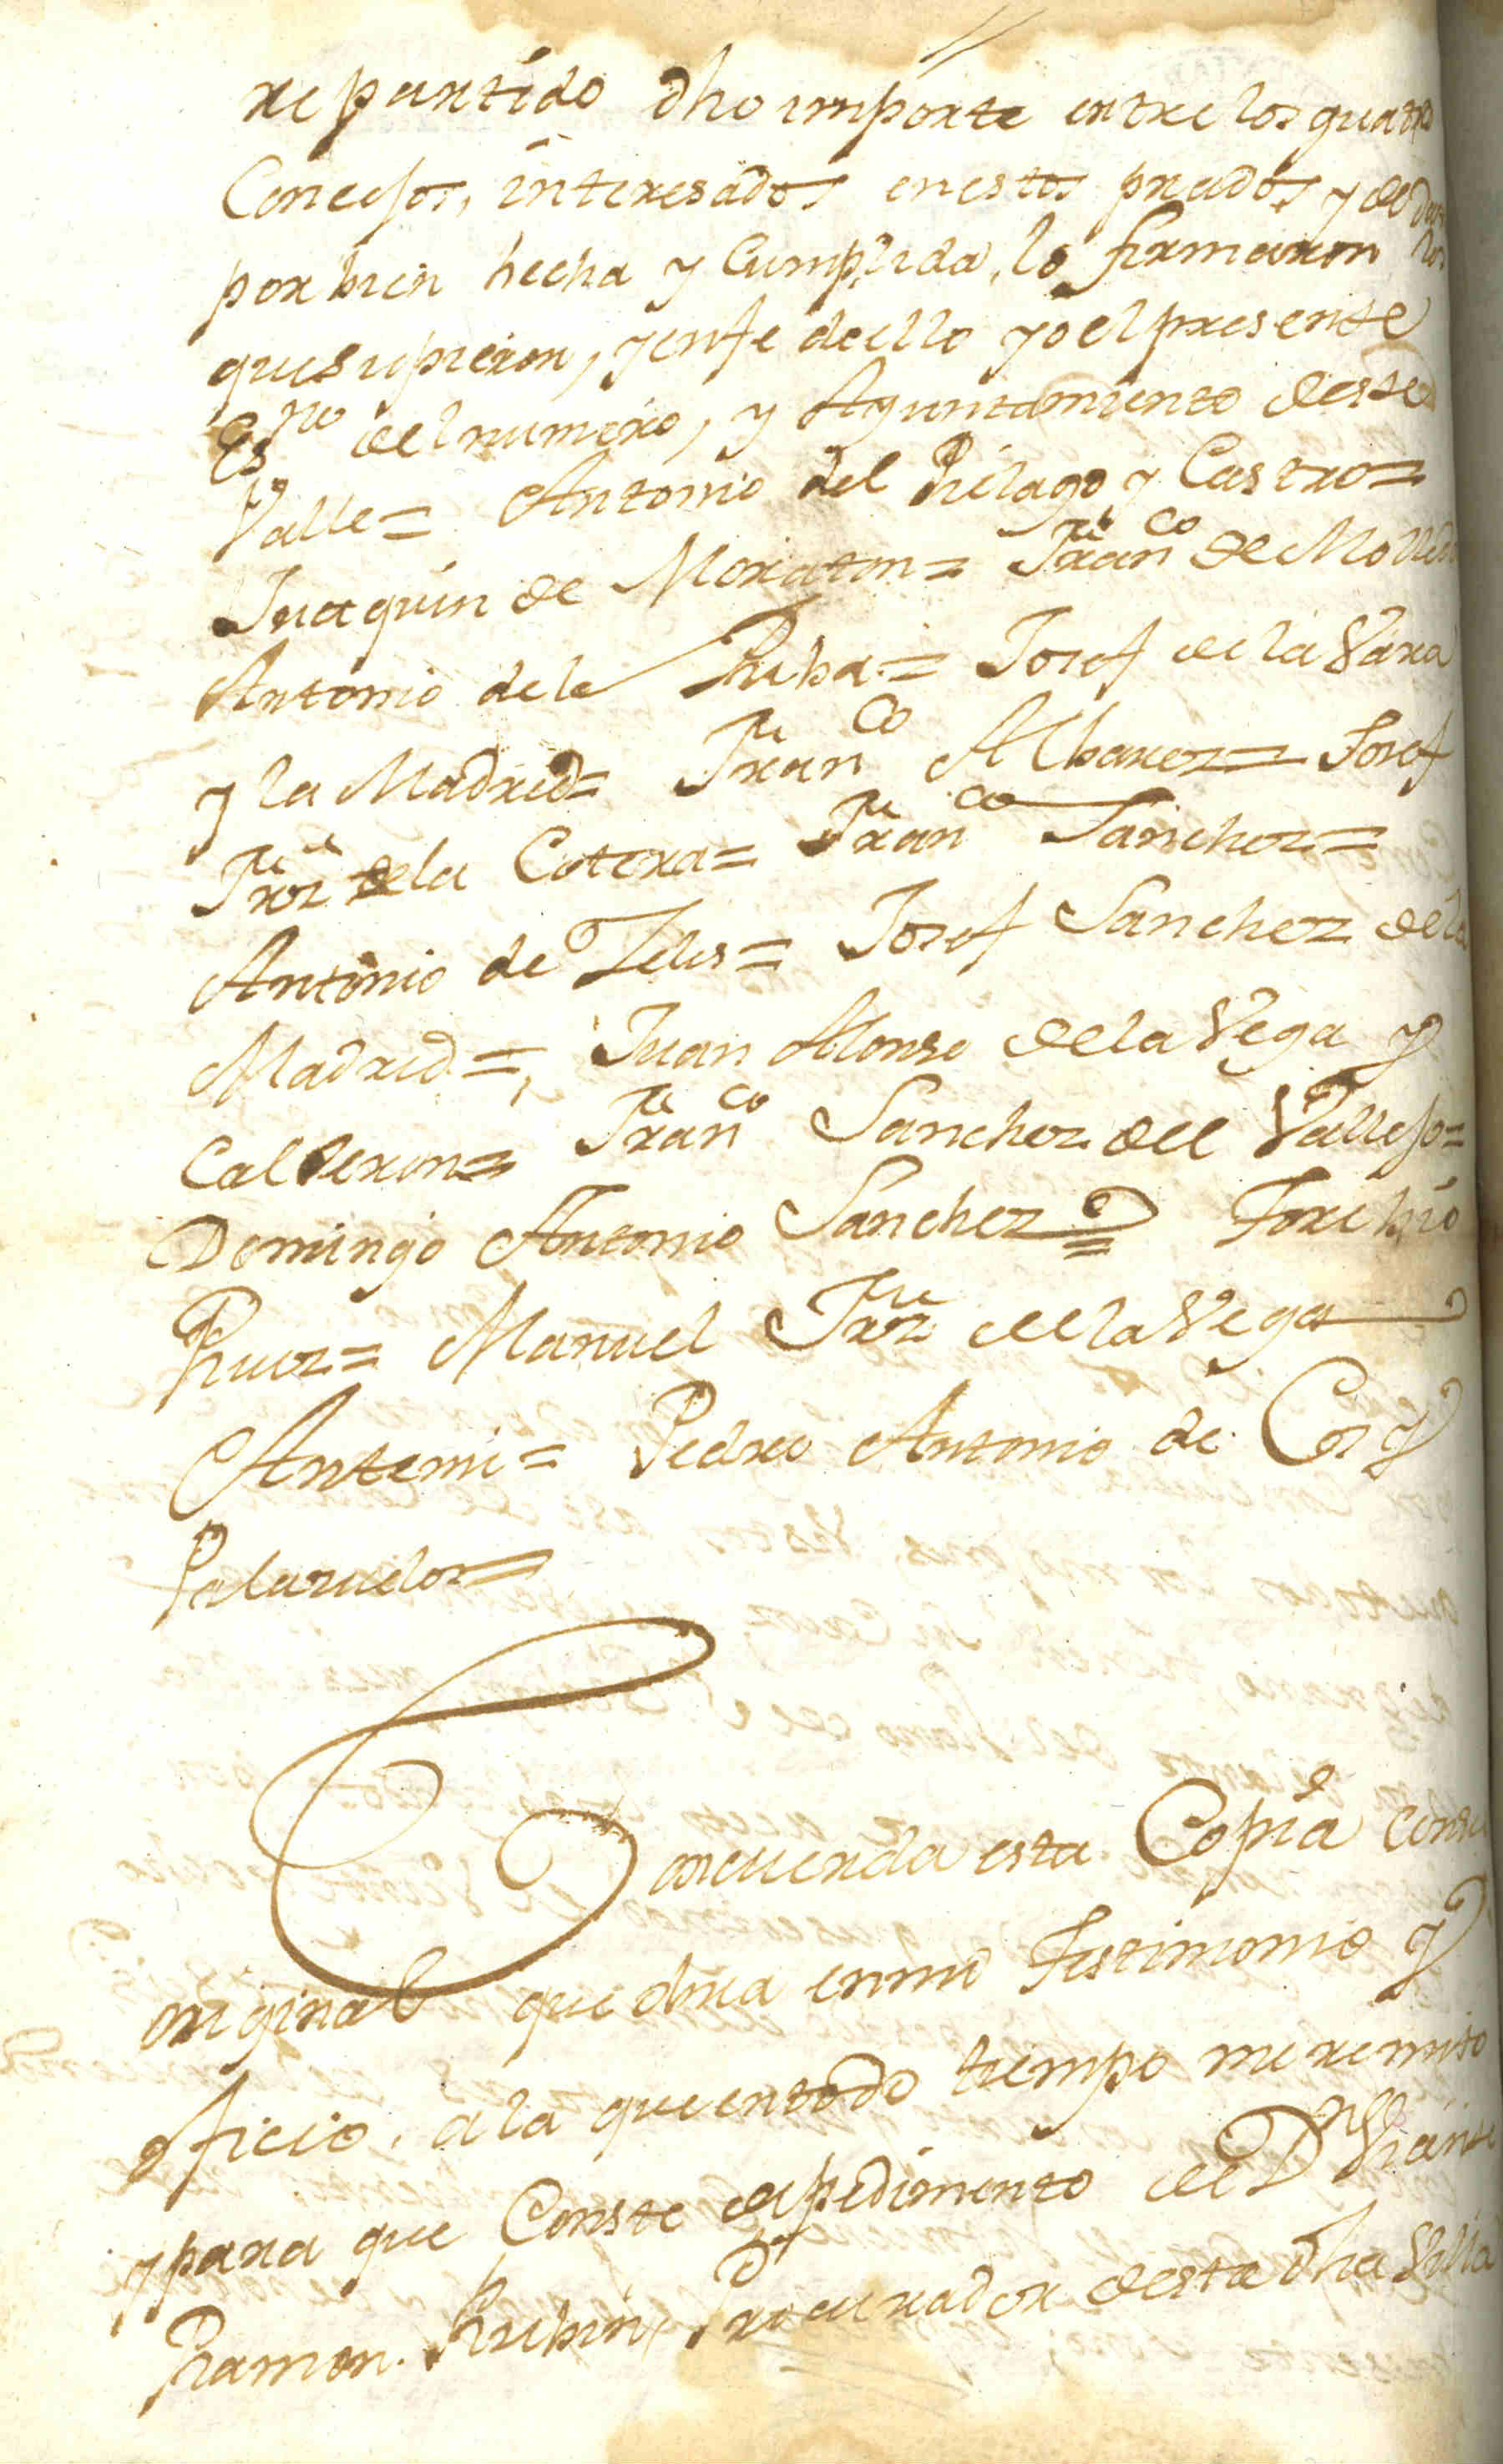 repartido dho importe entre los quatro
Concejos, interesados en estos prados y de
por bien hecha y Cumplida, lo firmaron los
que supieron, y enfe de ello yo el presente
Esno del numero, y Ayuntamiento deste
Valle = Antonio del Pielago y Castro =
Juaquin de Moxaton = Franco de
Antonio de la Riba = Josef de la Vara
y la Madrid = Franco Albarez = Josef
Frnz de la Cotera = Franco Sanchez =
Antonio de Zelis = Josef Sanchez de la
Madrid = Juan Alonso de la Vega y
Calderon = Franco Sanchez del Vallejo =
Domingo Antonio Sanchez = Toribio
Ruiz = Manuel Frnz de la Vega
Antemi = Pedro Antonio de Cos y
Palazuelos =
Concuerda esta Copia con su
original que obra en mi Testimonio y
oficio, a la que en todo tiempo me remito
y para que Conste de pedimento de Dn Vicente
Ramon Rubin, Procurador desta dha Villa